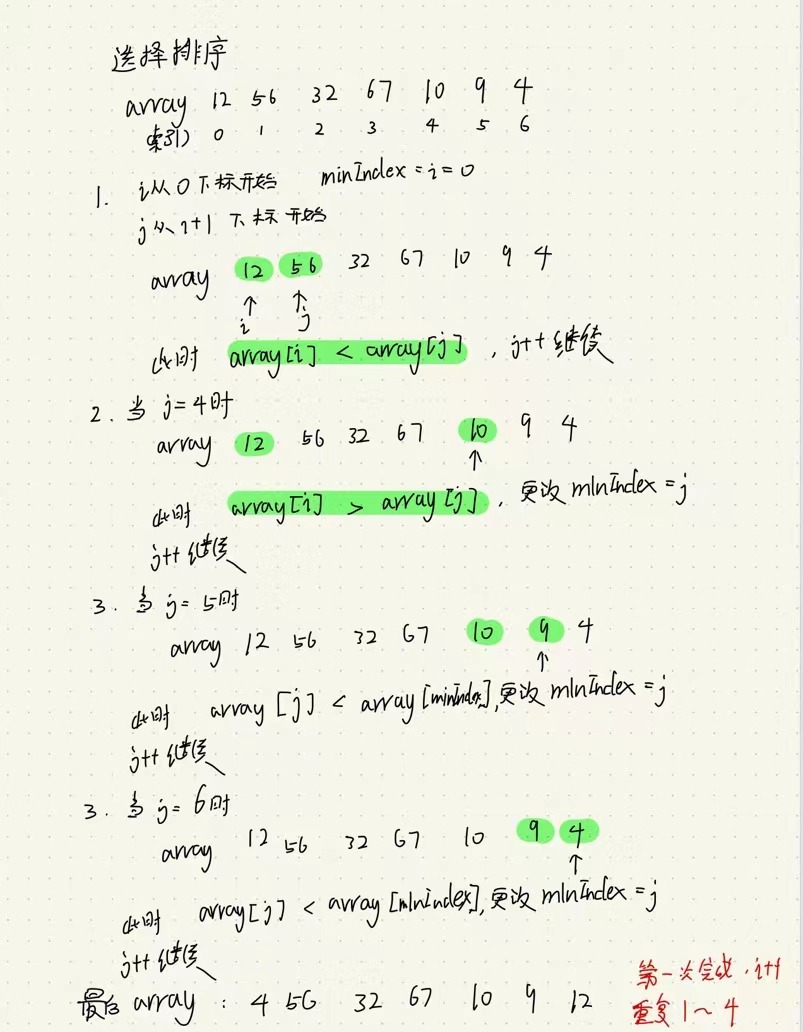 选择排序
array 12 56 32 67 10 9 4
索引 0 1 2 3 4 5 6
1. i从0下标开始 minIndex = i = 0
j从i+1下标开始
array 12 56 32 67 10 9 4
↑ ↑
i j
此时 array[i] < array[j] , j++ 继续
2. 当 j=4时
array 12 56 32 67 10 9 4
↑
此时 array[i] > array[j] , 更改 minIndex = j
j++ 继续
3. 当 j= 5时
array 12 56 32 67 10 9 4
↑
此时 array[j] < array[minIndex], 更改 minIndex = j
j++ 继续
3. 当 j= 6时
array 12 56 32 67 10 9 4
↑
此时 array[j] < array[minIndex], 更改 minIndex = j
j++ 继续
最后 array : 4 56 32 67 10 9 12
第一次完成, i++
重复 1~4